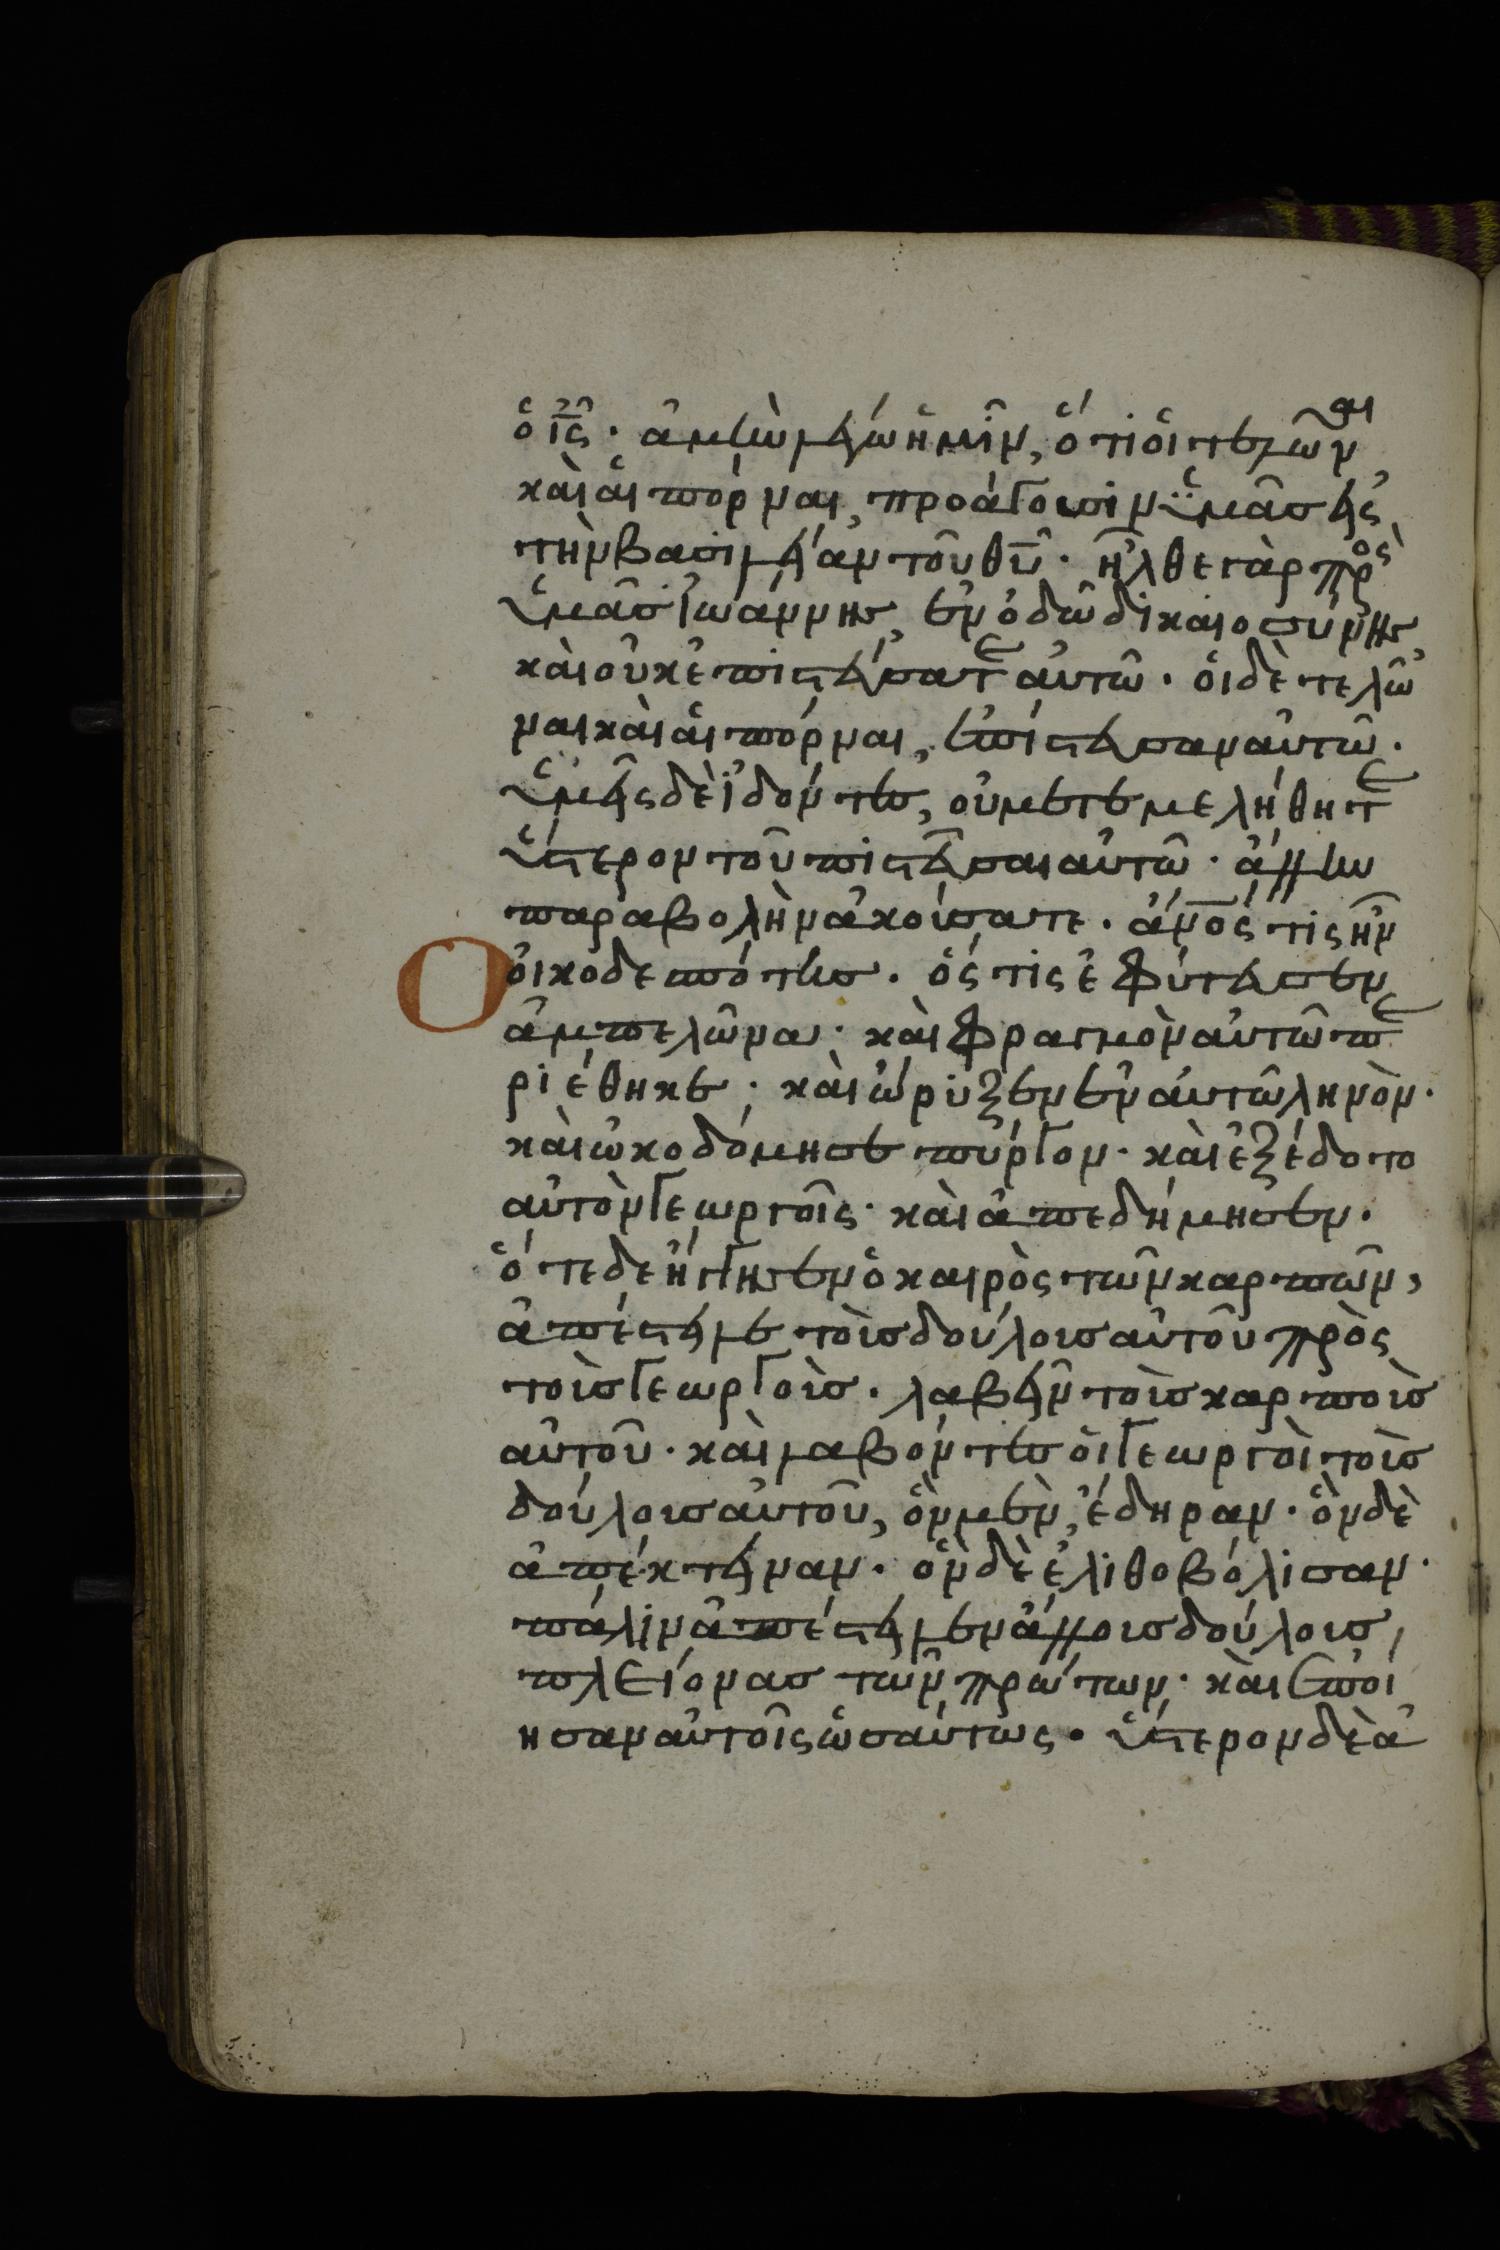 ὁ ἰ̅ς̅· ἀμὴν λέγω ὑμῖν, ὅτι οἱ τελῶναι
καὶ αἱ πόρναι, προάγουσιν ὑμᾶς εἰς
τὴν βασιλείαν τοῦ θ̅υ̅· ἦλθε γὰρ πρὸς
ὑμᾶς Ἰωάννης, ἐν ὁδῶ δικαιοσύνης
καὶ οὐκ ἐπιστεύσατε αὐτῶ· οἱ δὲ τελῶ
ναι καὶ αἱ πόρναι, ἐπίστευσαν αὐτῶ·
ὑμεῖς δὲ ἰδόντες, οὐ μετεμελήθητε
ὕστερον τοῦ πιστεῦσαι αὐτῶ· ἄλλην
παραβολὴν ἀκούσατε· ἄν̅ο̅ς τις ἦν
οἰκοδεσπότης· ὅς τις ἐφύτευσεν
ἀμπελῶνα· καὶ φραγμὸν αὐτῶ πε
ριέθηκε· καὶ ὤρυξεν ἐν αὐτῶ ληνὸν·
καὶ ὠκοδόμησε πύργον· καὶ ἐξέδοτο
αὐτὸν γεωργοῖς· καὶ ἀπεδήμησεν·
ὅτε δὲ ἤγγισεν ὁ καιρὸς τῶν καρπῶν,
ἀπέστειλε τοὺς δούλους αὐτοῦ πρὸς
τοὺς γεωργοὺς· λαβεῖν τοὺς καρποὺς
αὐτοῦ· καὶ λαβόντες οἱ γεωργοὶ τοὺς
δούλους αὐτοῦ, ὃν μὲν, ἔδηραν· ὃν δὲ
ἀπέκτειναν· ὃν δὲ ἐλιθοβόλισαν·
πάλιν ἀπέστειλεν ἄλλους δούλους,
πλείονας τῶν πρώτων· καὶ ἐποί
ησαν αὐτοῖς ὡσαύτως· ὕστερον δὲ ἀ